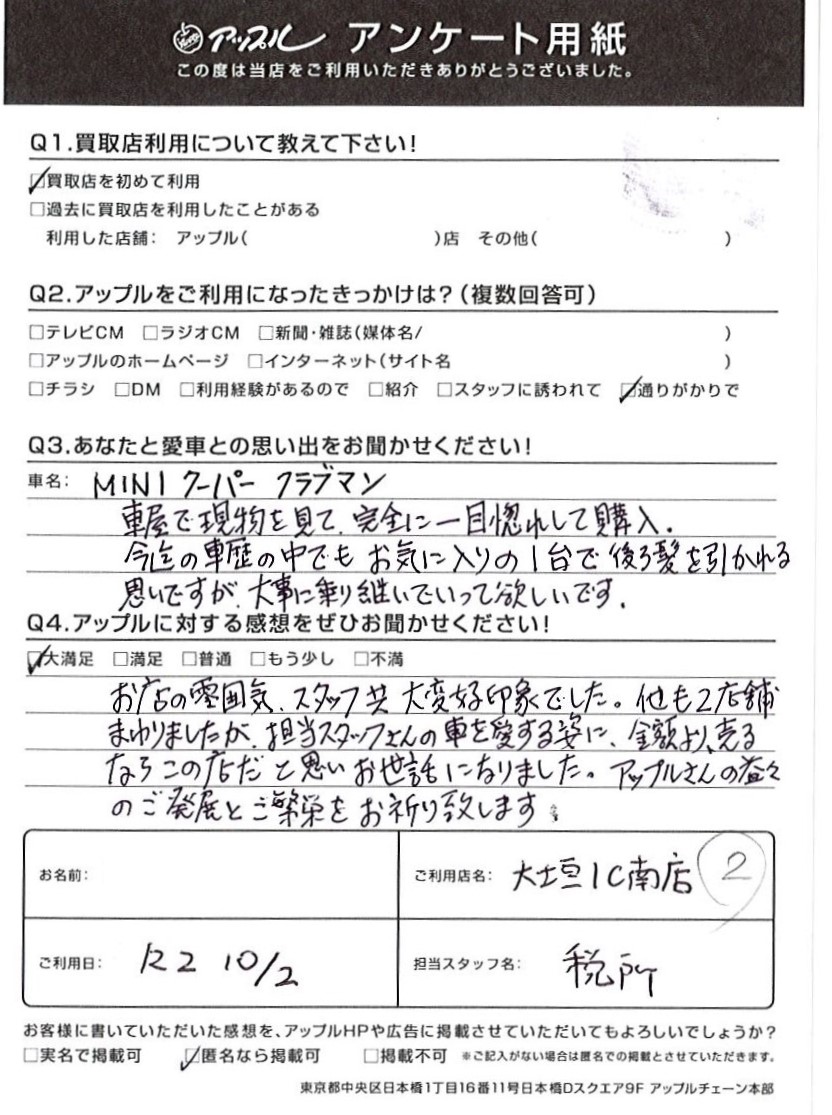 アップル アンケート用紙
この度は当店をご利用いただきありがとうございました。
Q1.買取店利用について教えて下さい!
☑買取店を初めて利用
□過去に買取店を利用したことがある
利用した店舗: アップル( )店 その他( )
Q2.アップルをご利用になったきっかけは?(複数回答可)
□テレビCM □ラジオCM □新聞・雑誌(媒体名/ )
□アップルのホームページ □インターネット(サイト名 )
□チラシ □DM □利用経験があるので □紹介 □スタッフに誘われて ☑通りがかりで
Q3.あなたと愛車との思い出をお聞かせください!
車名: MINI クーパー クラブマン
車屋で現物を見て、完全に一目惚れして購入。
今迄の車歴の中でもお気に入りの1台で後ろ髪を引かれる
思いですが、大事に乗り継いでいって欲しいです。
Q4.アップルに対する感想をぜひお聞かせください!
☑大満足 □満足 □普通 □もう少し □不満
お店の雰囲気、スタッフ共 大変好印象でした。他も2店舗
まわりましたが、担当スタッフさんの車を愛する姿に、金額より、売る
ならこの店だと思いお世話になりました。アップルさんの益々
のご発展とご繁栄をお祈り致します。
お名前:
ご利用店名: 大垣IC南店 2
ご利用日: R2 10/2
担当スタッフ名: 税所
お客様に書いていただいた感想を、アップルHPや広告に掲載させていただいてもよろしいでしょうか?
□実名で掲載可 ☑匿名なら掲載可 □掲載不可 ※ご記入がない場合は匿名での掲載とさせていただきます。
東京都中央区日本橋1丁目16番11号日本橋Dスクエア9F アップルチェーン本部